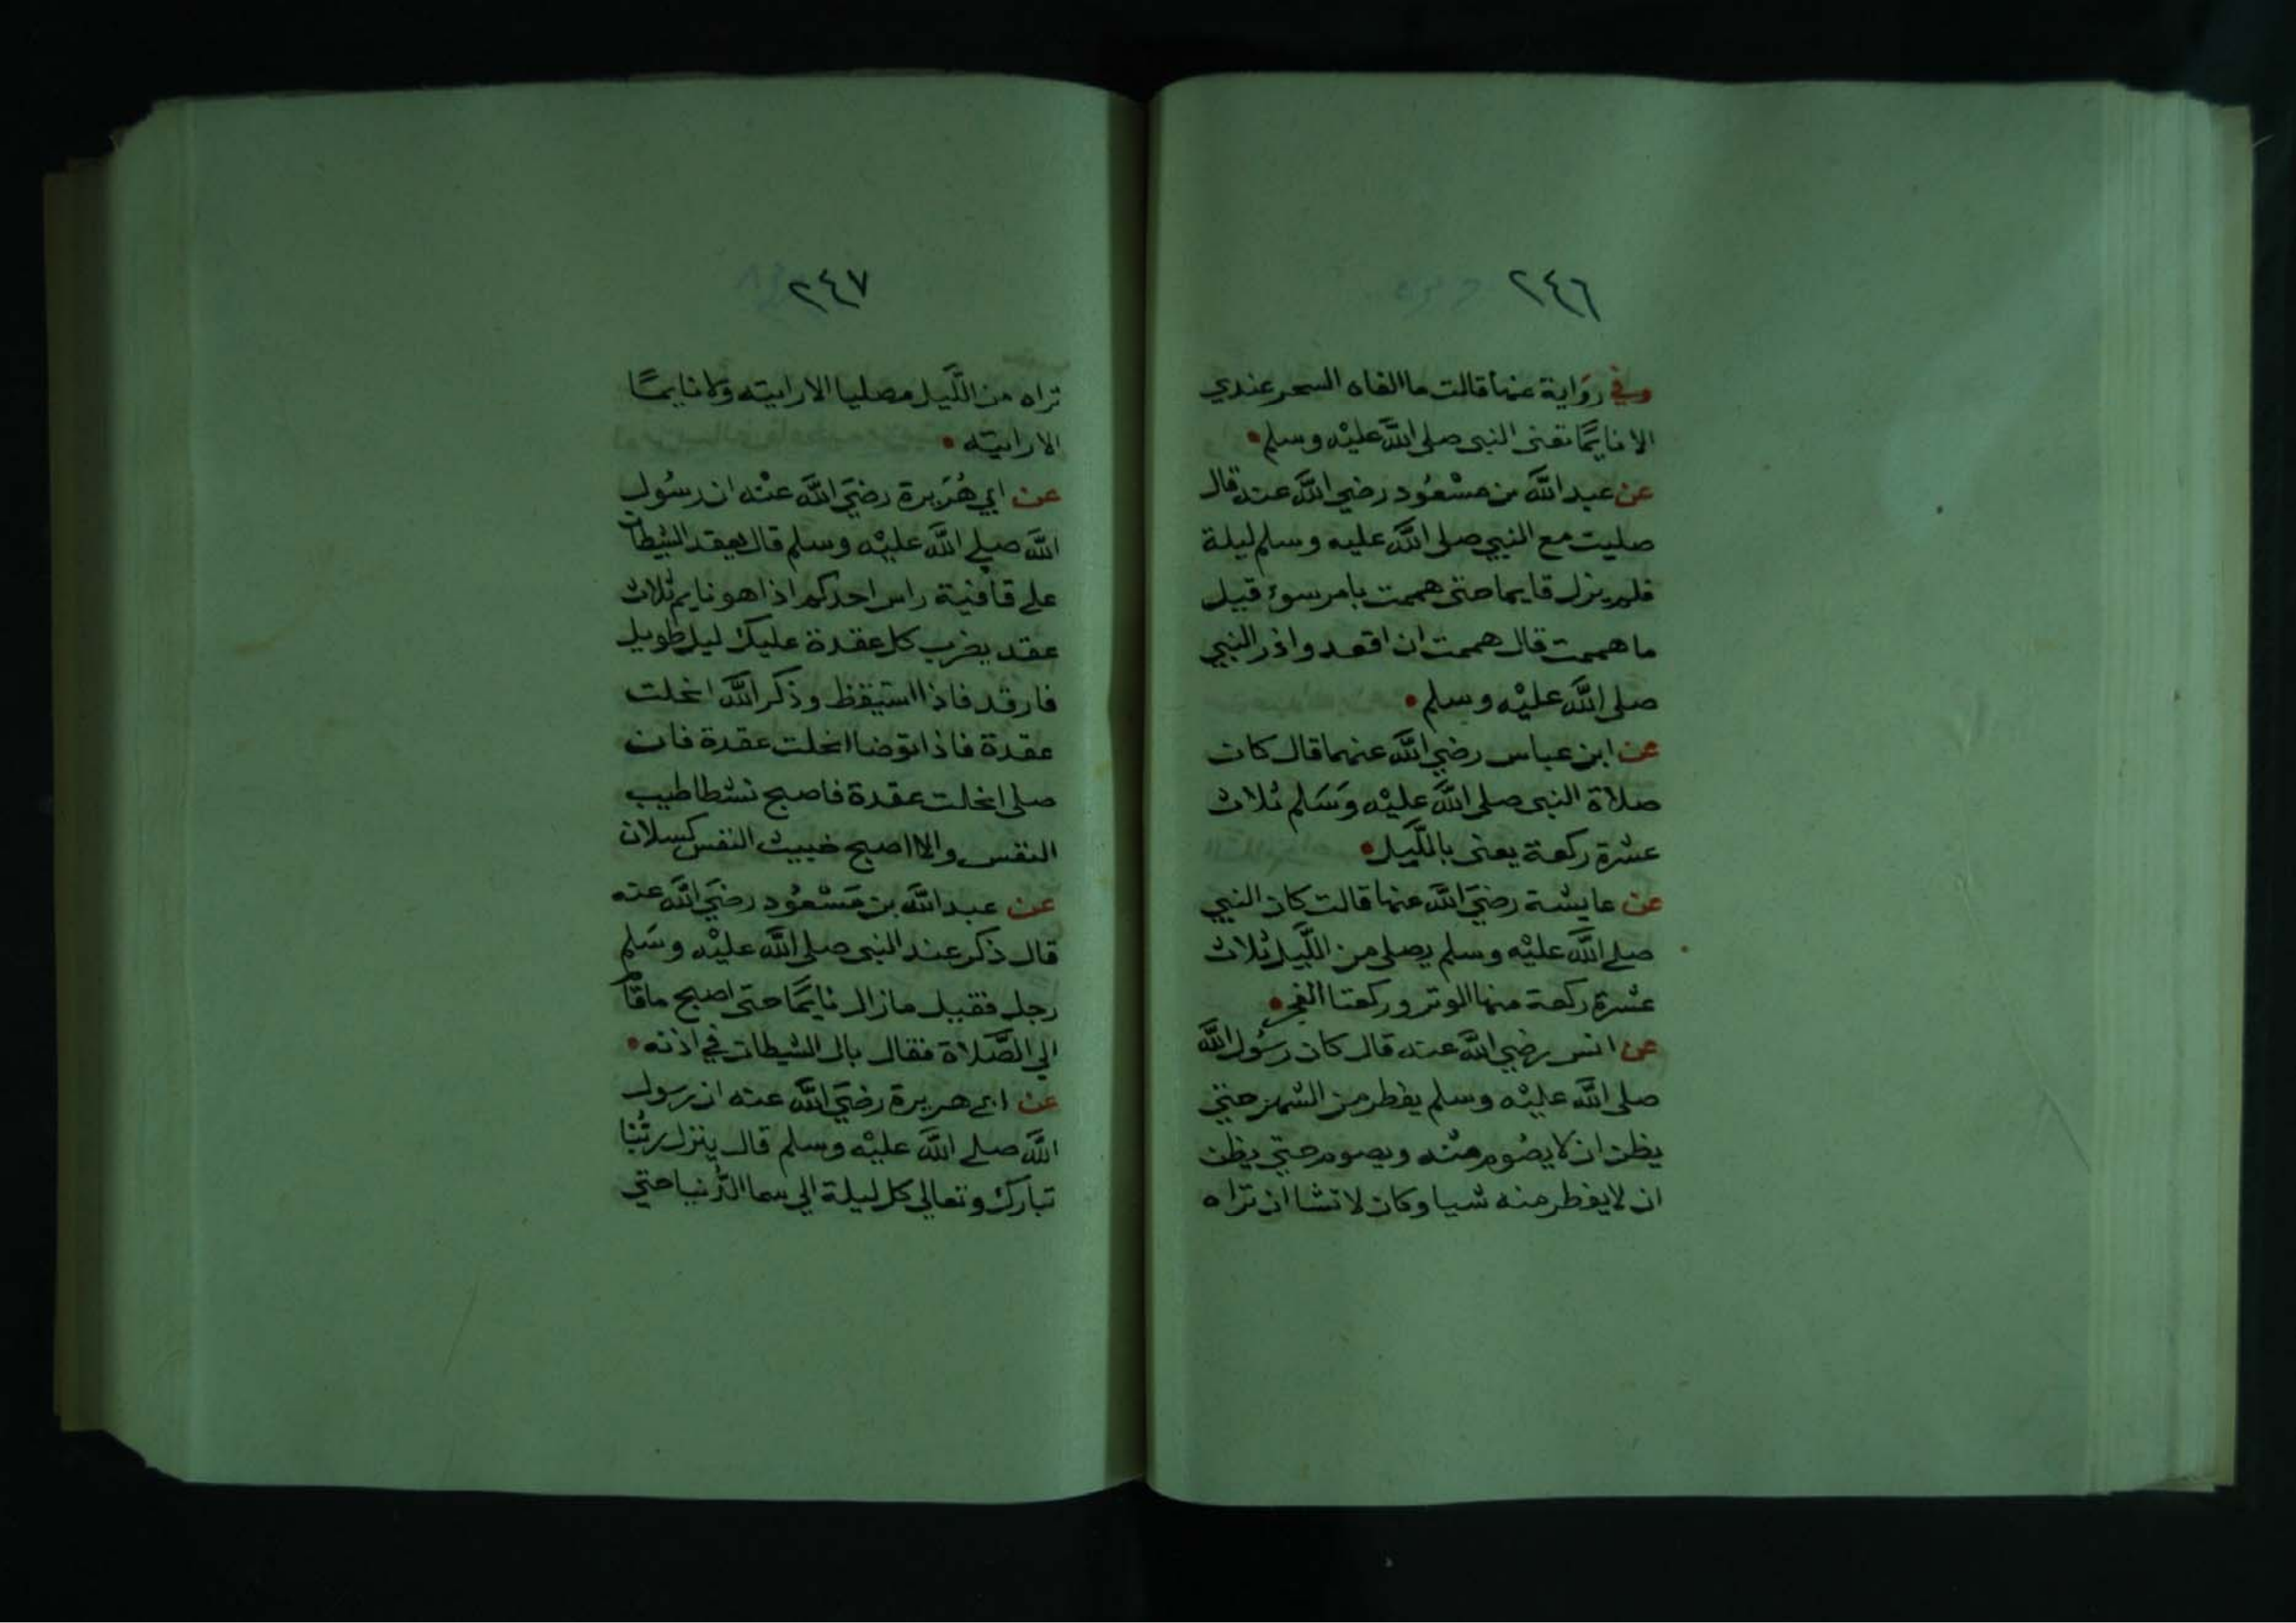 ٢٤٦
وفي رواية عنها قالت ما الفاه السحر عندي
الا نايمًا تعنى النبى صلى اللَّه عليْه وسلم
عن عبد اللَّه بن مسْعُود رضي اللَّه عنه قال
صليت مع النبي صلى اللَّه عليه وسلم ليلة
فلم يزل قايما حتى هممت بامر سوء قيل
ما هممت قال هممت ان اقعد واذر النبي
صلى اللَّه عليْه وسلم
عن ابن عباس رضي اللَّه عنهما قال كان
صلاة النبى صلى اللَّه عليْه وَسَلم ثلاث
عشرة ركعة يعنى بالَّليل
عن عايشة رضيَ اللَّه عنها قالت كان النبي
صلى اللَّه عليْه وسلم يصلى من اللَّيل ثلاث
عشرة ركعة منها الوتر وركعتا الفجر
عن انس رضي اللَّه عنه قال كان رسُول اللَّه
صلى اللَّه عليْه وسلم يفطر من الشهر حتى
يظن ان لا يصُوم منْه ويصوم حتي يظن
ان لا يفطر منه شيا وكان لا تشا ان تراه
٢٤٧
تراه من اللَّيل مصليا الا رايته ولا نايمًا
الا رايته
عن ابي هُرَيرة رضيَ اللَّه عنْه ان رسُول
اللَّه صلى اللَّه عليْه وسلم قال يعقد الشيطان
على قافية راس احدكم اذا هو نايم ثلاث
عقد يضرب كل عقدة عليك ليل طويل
فارقد فاذا استيقظ وذكر اللَّه انحلت
عقدة فاذا توضا انحلت عقدة فان
صلى انحلت عقدة فاصبح نشطا طيب
النفس والا اصبح خبيث النفس كسلان
عن عبد اللَّه بن مَسْعُود رضيَ اللَّه عنه
قال ذكر عند النبى صلى اللَّه عليْه وسَلم
رجل فقيل ما زال نايمًا حتى اصبح ما قام
الي الصَّلاة فقال بال الشيطان في اذنه
عن ابى هريرة رضيَ اللَّه عنه ان رسول
اللَّه صلى اللَّه عليْه وسلم قال ينزل ربُّنا
تبارك وتعالى كل ليلة الي سما الدُّنيا حتي